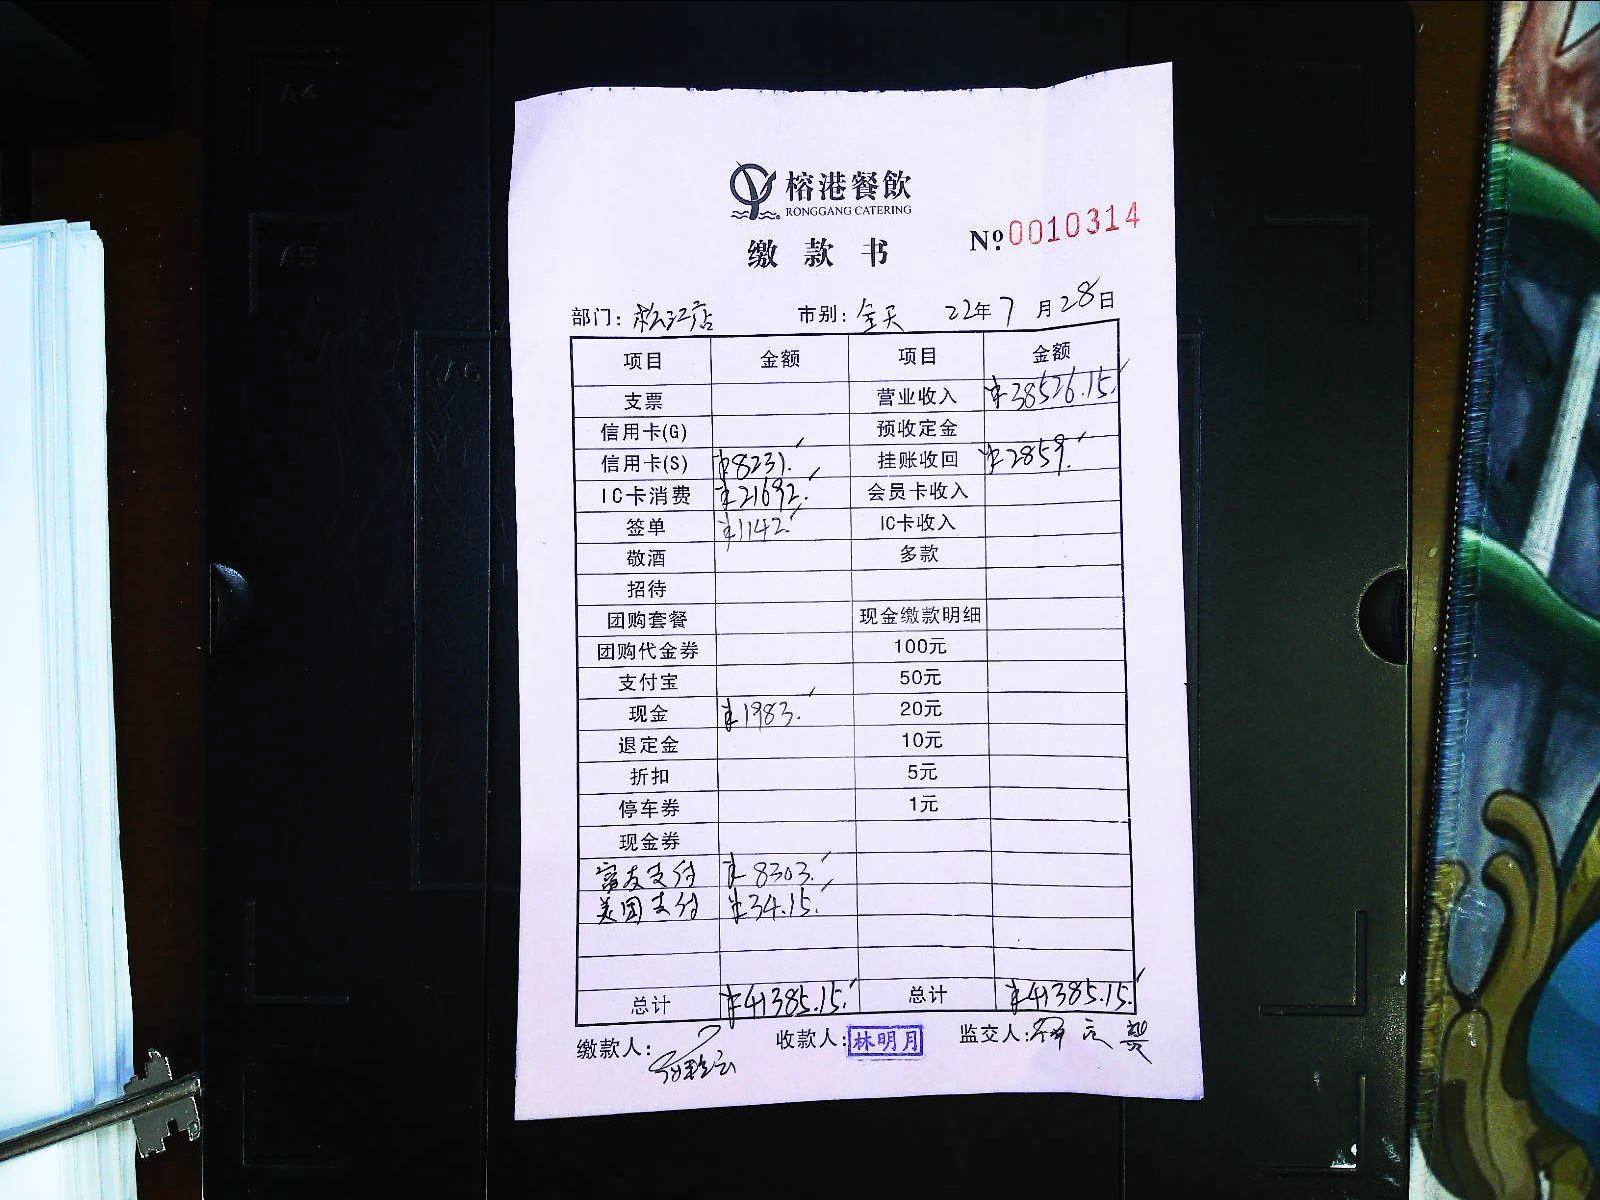 A4
A5
A6
榕港餐飲
RONGGANG CATERING
缴款书
Nº 0010314
部门：松江店 市别：全天 22年7月28日
项目 金额 项目 金额
支票 营业收入 ¥38526.15
信用卡(G) 预收定金
信用卡(S) ¥8231. 挂账收回 ¥2859.
IC卡消费 ¥21692. 会员卡收入
签单 ¥1142. IC卡收入
敬酒 多款
招待
团购套餐 现金缴款明细
团购代金券 100元
支付宝 50元
现金 ¥1983. 20元
退定金 10元
折扣 5元
停车券 1元
现金券
富友支付 ¥8303.
美团支付 ¥34.15.
总计 ¥41385.15. 总计 ¥41385.15.
缴款人： 收款人：林明月 监交人：